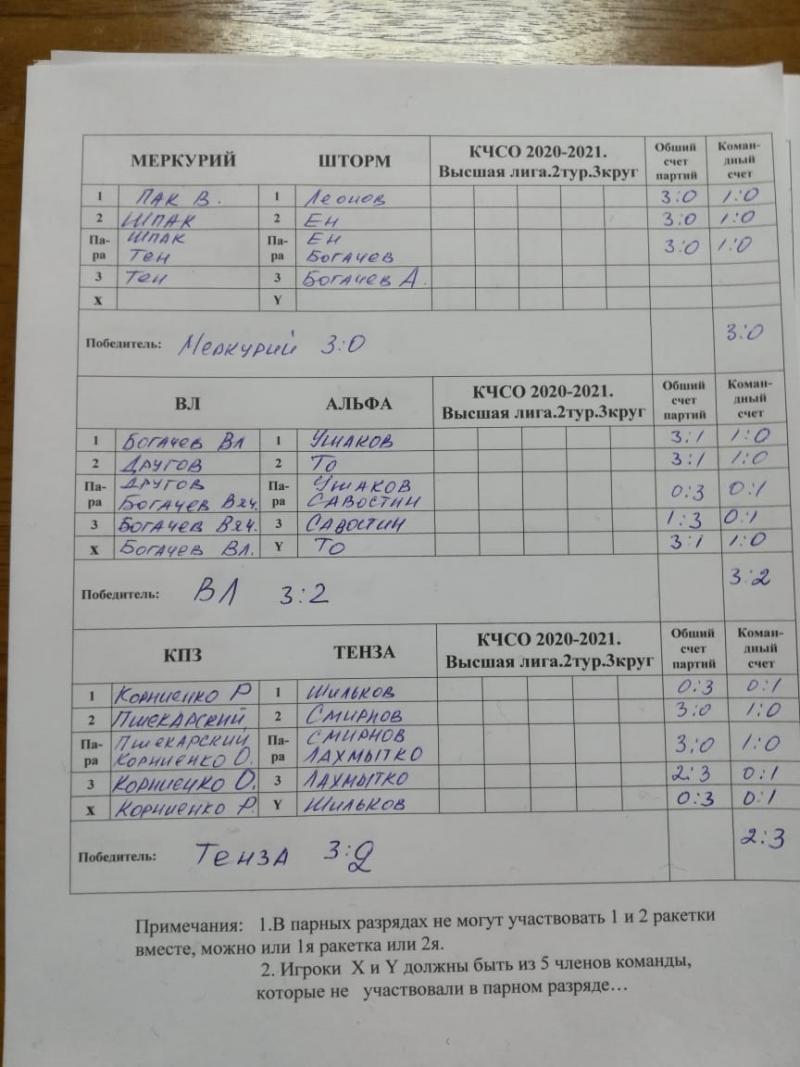 МЕРКУРИЙ ШТОРМ КЧСО 2020-2021. Высшая лига.2тур.3круг Общий счет партий Коман-дный счет
1 ПАК В. 1 Леонов 3:0 1:0
2 ШПАК 2 ЕН 3:0 1:0
Па-ра ШПАК Па-ра ЕН 3:0 1:0
Тен Богачев
3 Тен 3 Богачев А.
X Y
Победитель: Меркурий 3:0 3:0
ВЛ АЛЬФА КЧСО 2020-2021. Высшая лига.2тур.3круг Общий счет партий Коман-дный счет
1 Богачев Вл 1 Ушаков 3:1 1:0
2 Другов 2 То 3:1 1:0
Па-ра Другов Па-ра Ушаков 0:3 0:1
Богачев Вяч. Савостин
3 Богачев Вяч. 3 Савостин 1:3 0:1
X Богачев Вл. Y То 3:1 1:0
Победитель: ВЛ 3:2 3:2
КПЗ ТЕНЗА КЧСО 2020-2021. Высшая лига.2тур.3круг Общий счет партий Коман-дный счет
1 Корниенко Р 1 Шильков 0:3 0:1
2 Пшекарский 2 Смирнов 3:0 1:0
Па-ра Пшекарский Па-ра Смирнов 3:0 1:0
Корниенко О. Лахмытко
3 Корниенко О. 3 Лахмытко 2:3 0:1
X Корниенко Р. Y Шильков 0:3 0:1
Победитель: Тенза 3:2 2:3
Примечания: 1.В парных разрядах не могут участвовать 1 и 2 ракетки
вместе, можно или 1я ракетка или 2я.
2. Игроки X и Y должны быть из 5 членов команды,
которые не участвовали в парном разряде…